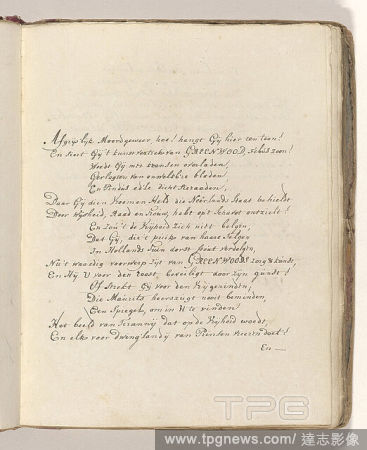 Afgrijslijk Moordgeweer, hoe! hangt Gij hier ten toon!
En siert Gij 't kunstvertrek van GREENWOOD,
Wordt Gij met kransen overladen,
Gevlogten van onwelkbre bladen,
En Pindus edle dichtsieraaden,
Daar Gij dien Vroomen Held, die Neêrlands Staat behield
Door Wijsheid, Raad en Trouw, hebt op 't Schavot ontzield!
En zou 't de Vrijheid zich niet belgen,
Dat Gij, die 't puikje van haare telgen
In Hollands Tuin dorst stout verdelgen,
Nu 't waardig voorwerp zijt van GREENWOODS zorg & kunst,
En Hij U voor den roest, beveiligt door zijn gunst!
Of strekt Gij voor den Vrijgezinden,
Die Maurits heerszugt nooit beminden,
Een Spiegel, om in U te vinden
Het beeld van Tirannij dat op de Vrijheid woedt,
En elks voor dwinglandij van Prinsten vreezen doet!
En —
TPG
www.tpgnews.com/達志影像